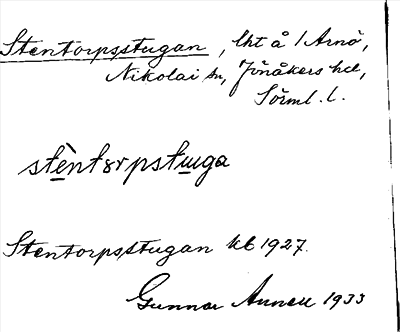 Stentorpsstugan, lht å 1 Arnö,
Nikolai sn, Jönåkers hd,
Sörml. l.
stèntɷrpstuga
Stentorpsstugan kb 1927.
Gunnar Annell 1933